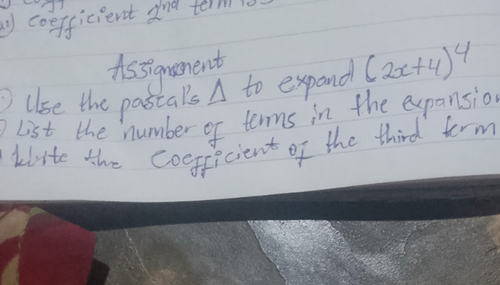 ii) coefficient 2nd term is
Assignment
Use the pascal's Δ to expand (2x+4)^4
List the number of terms in the expansion
Write the coefficient of the third term